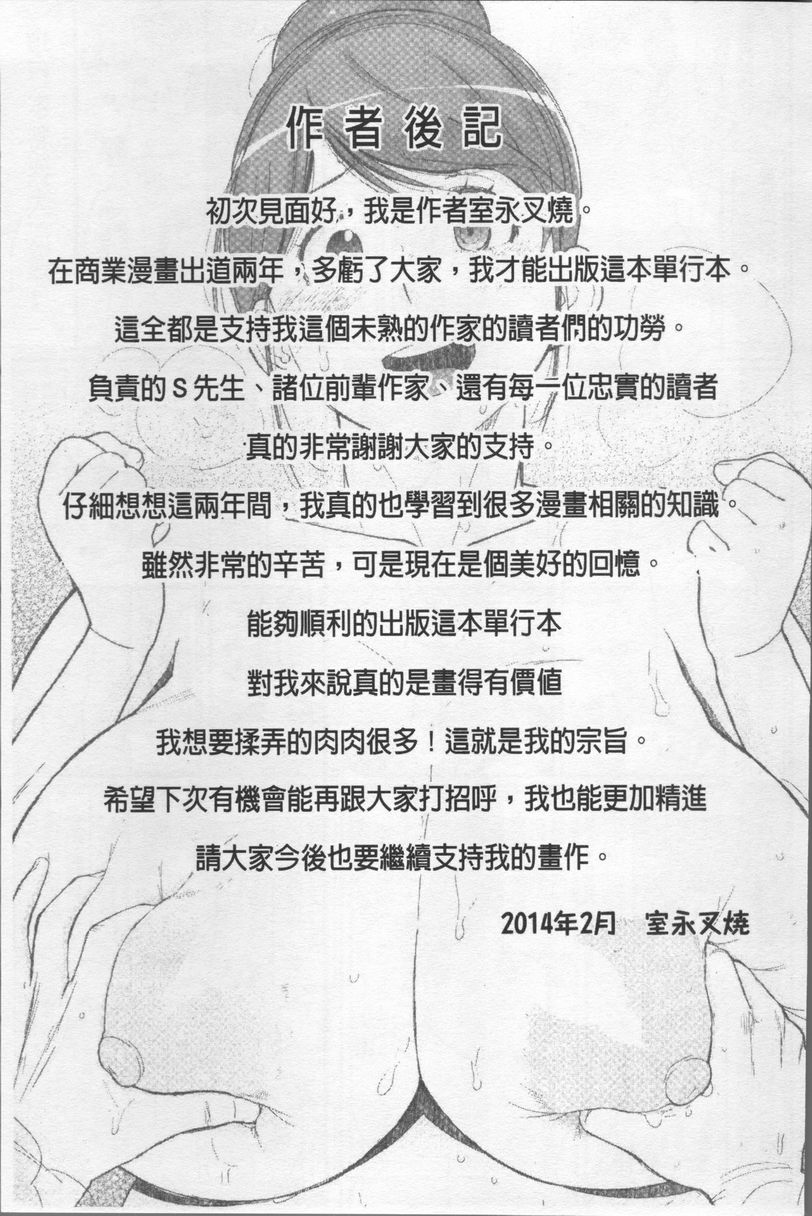 作者後記
初次見面好，我是作者室永叉燒。
在商業漫畫出道兩年，多虧了大家，我才能出版這本單行本。
這全都是支持我這個未熟的作家的讀者們的功勞。
負責的S先生、諸位前輩作家、還有每一位忠實的讀者
真的非常謝謝大家的支持。
仔細想想這兩年間，我真的也學習到很多漫畫相關的知識。
雖然非常的辛苦，可是現在是個美好的回憶。
能夠順利的出版這本單行本
對我來說真的是畫得有價值
我想要揉弄的肉肉很多！這就是我的宗旨。
希望下次有機會能再跟大家打招呼，我也能更加精進
請大家今後也要繼續支持我的畫作。
2014年2月　室永叉燒